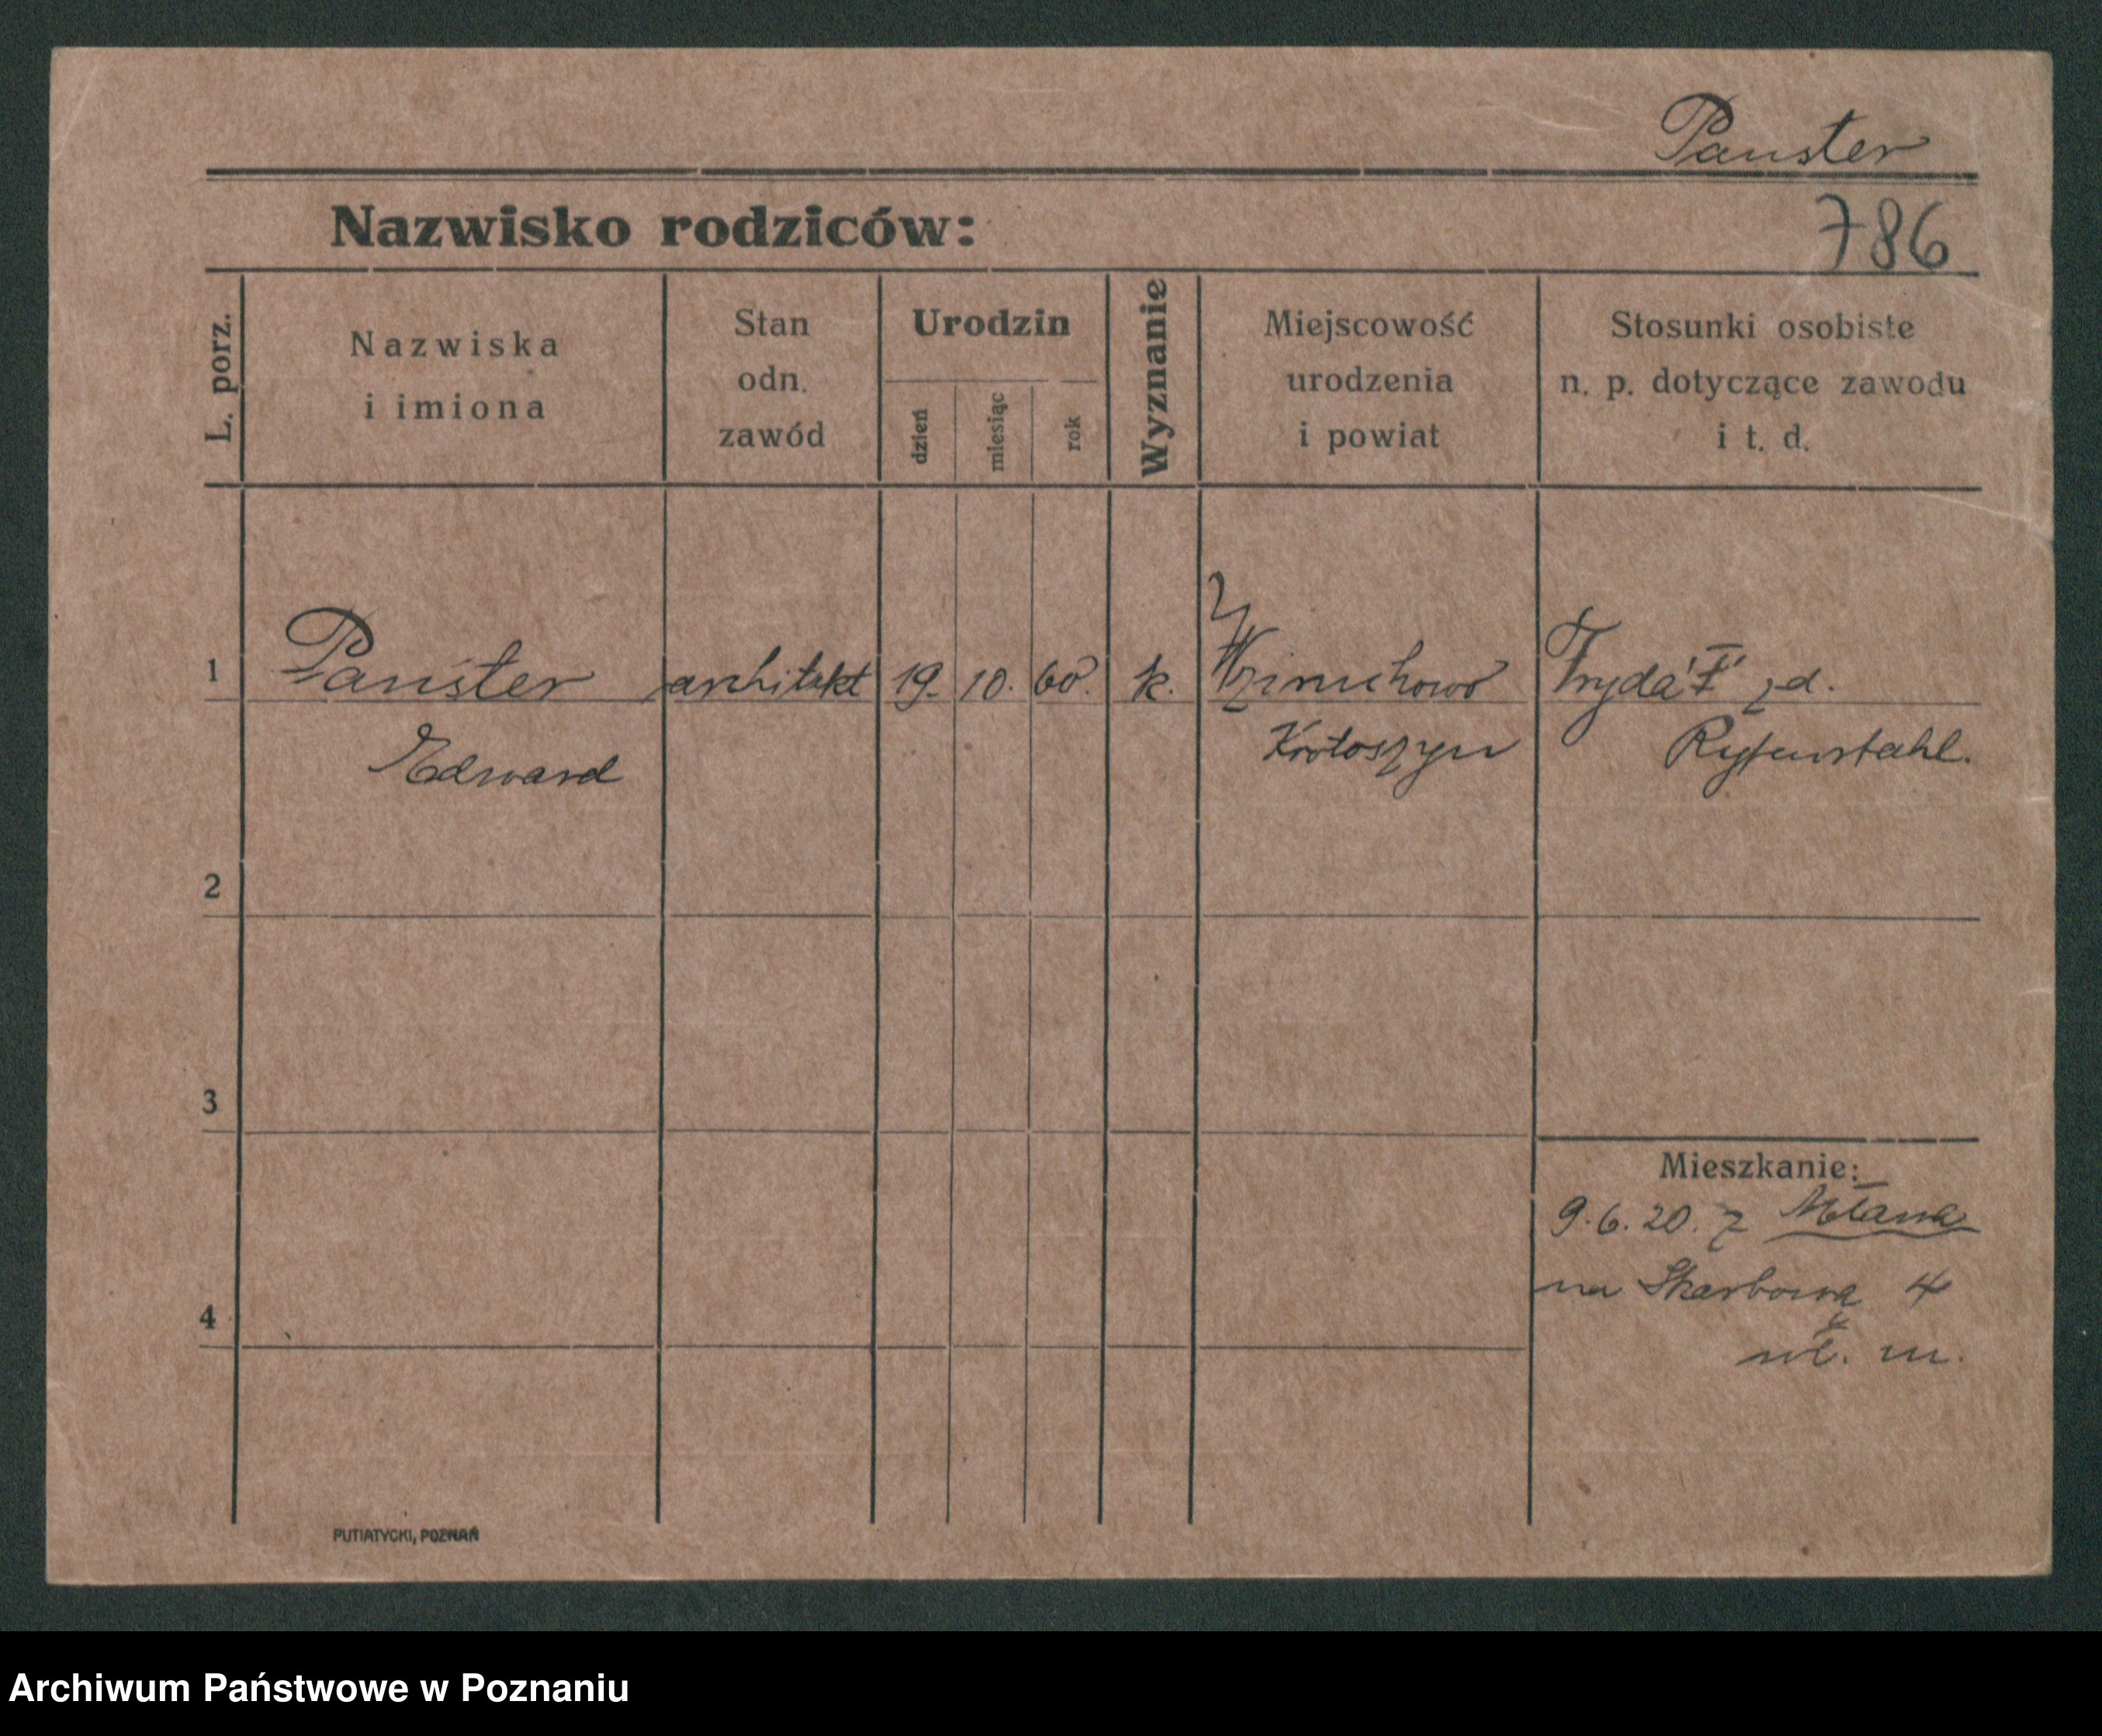 Panster
Nazwisko rodziców:
786
L. porz.
Nazwiska
i imiona
Stan
odn.
zawód
Urodzin
dzień
miesiąc
rok
Wyznanie
Miejscowość
urodzenia
i powiat
Stosunki osobiste
n. p. dotyczące zawodu
i t. d.
1
Panster architekt 19. 10. 60. k.
Edward
Krotoszyn
2
3
4
Mieszkanie:
9.6.20. z Mława
na Skarbową 4
wł. m.
PUTIATYCKI, POZNAŃ
Archiwum Państwowe w Poznaniu